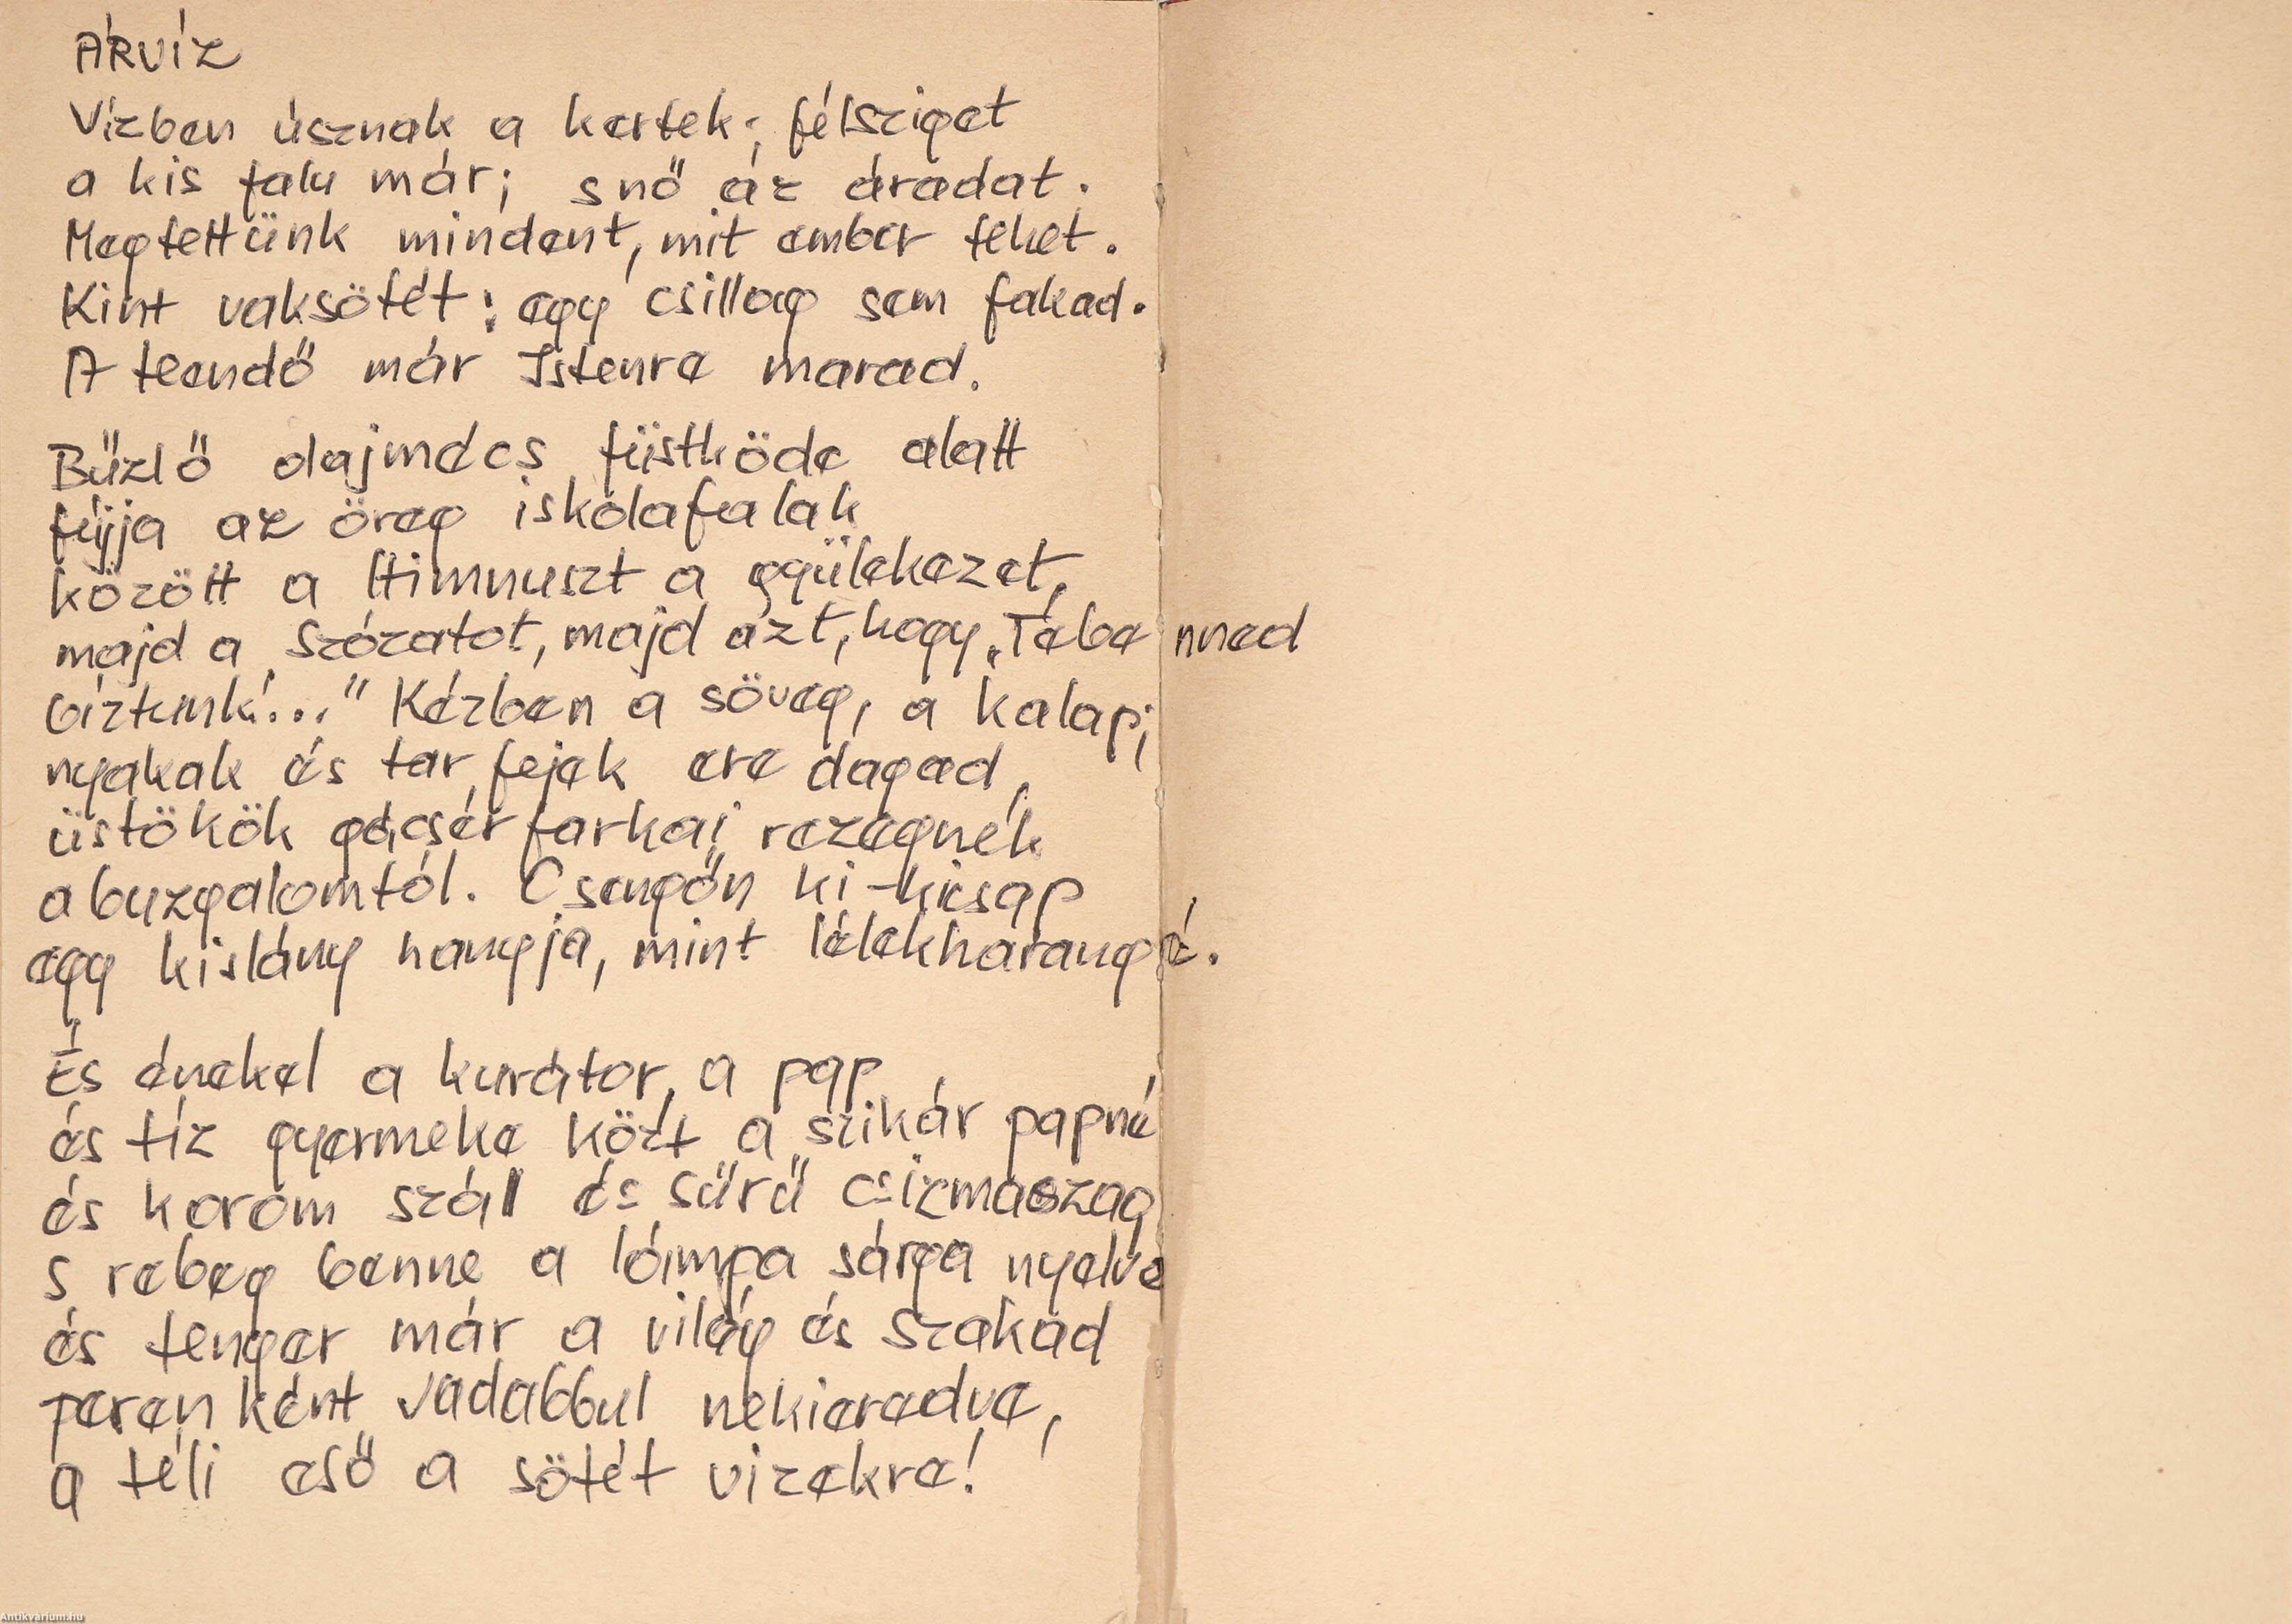 ÁRVÍZ
Vízben úsznak a kertek; félsziget
a kis falu már; s nő az áradat.
Megtettünk mindent, mit ember tehet.
Kint vaksötét; egy csillag sem fakad.
A teendő már Istenre marad.
Bűzlő olajmécs füstköde alatt
fújja az öreg iskolafalak
között a Himnuszt a gyülekezet,
majd a Szózatot, majd azt, hogy „Tebenned
bíztunk!..." Kézben a söveg, a kalap;
nyakak és tar fejek ere dagad,
üstökök gácsér farkai rezegnek
a buzgalomtól. Csengőn ki-kicsap
egy kislány hangja, mint lélekharangé.
És énekel a kurátor, a pap
és tíz gyermeke közt a szikár papné
és korom száll és sűrű csizmaszag
s rebeg benne a lámpa sárga nyelve
és tenger már a világ és szakad
perenként vadabbul nekieredve,
a téli eső a sötét vizekre!
Antikvárium.hu